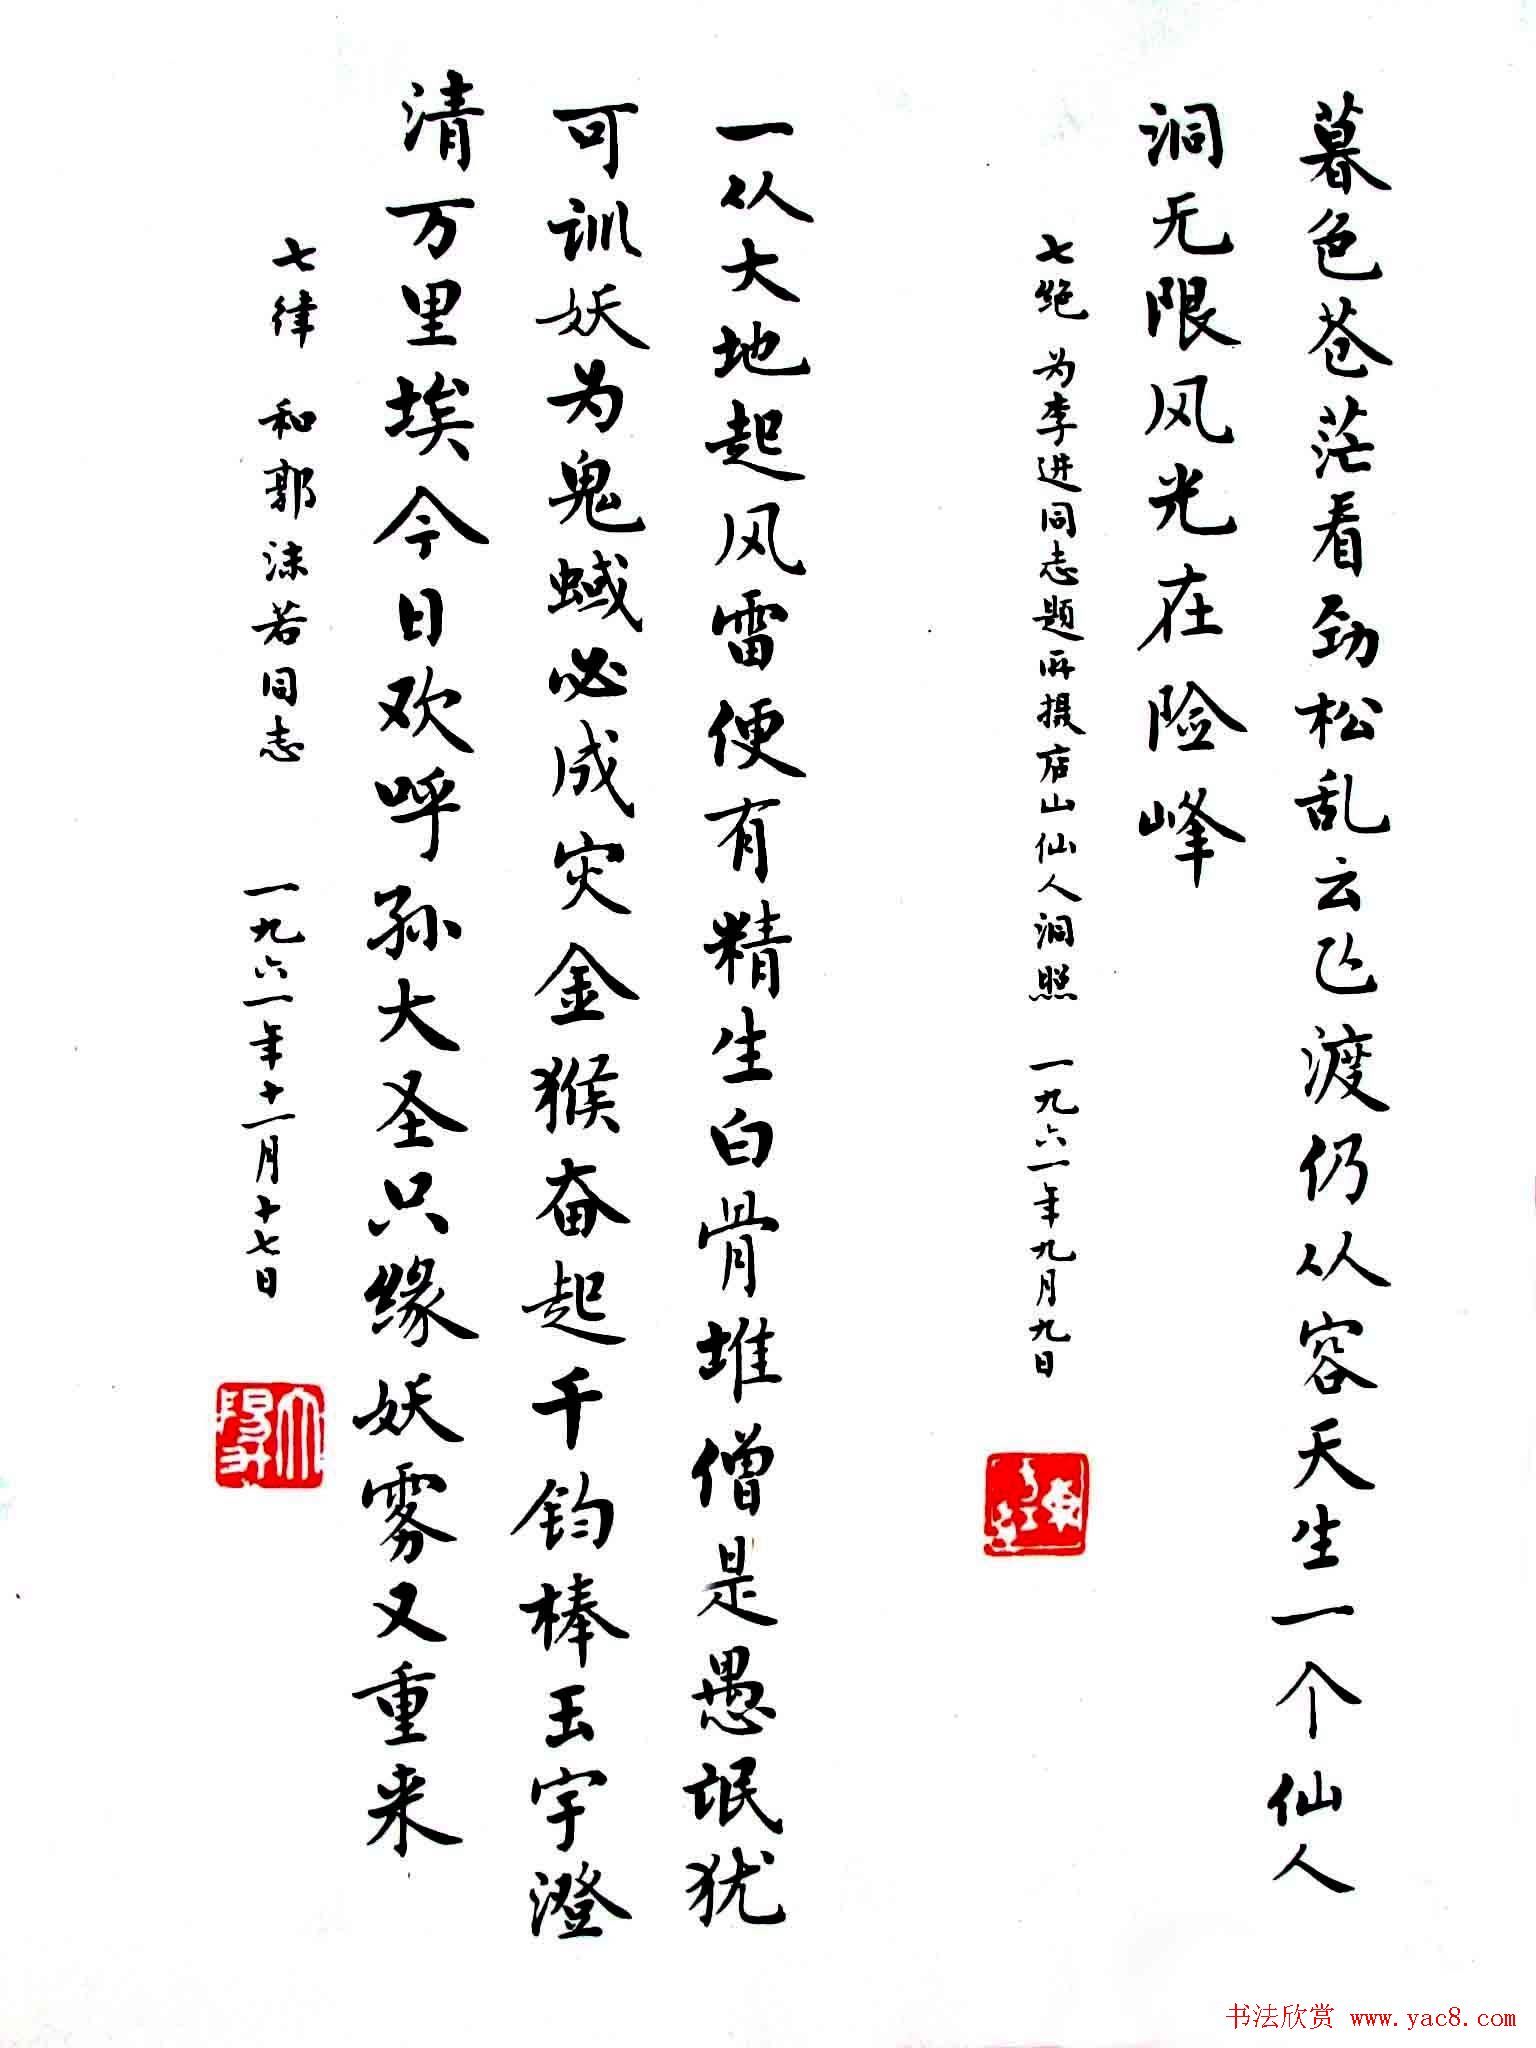 暮色苍茫看劲松乱云飞渡仍从容天生一个仙人
洞无限风光在险峰
七绝 为李进同志题所摄庐山仙人洞照 一九六一年九月九日
一从大地起风雷便有精生白骨堆僧是愚氓犹
可训妖为鬼蜮必成灾金猴奋起千钧棒玉宇澄
清万里埃今日欢呼孙大圣只缘妖雾又重来
七律 和郭沫若同志 一九六一年十一月十七日
书法欣赏 www.yac8.com